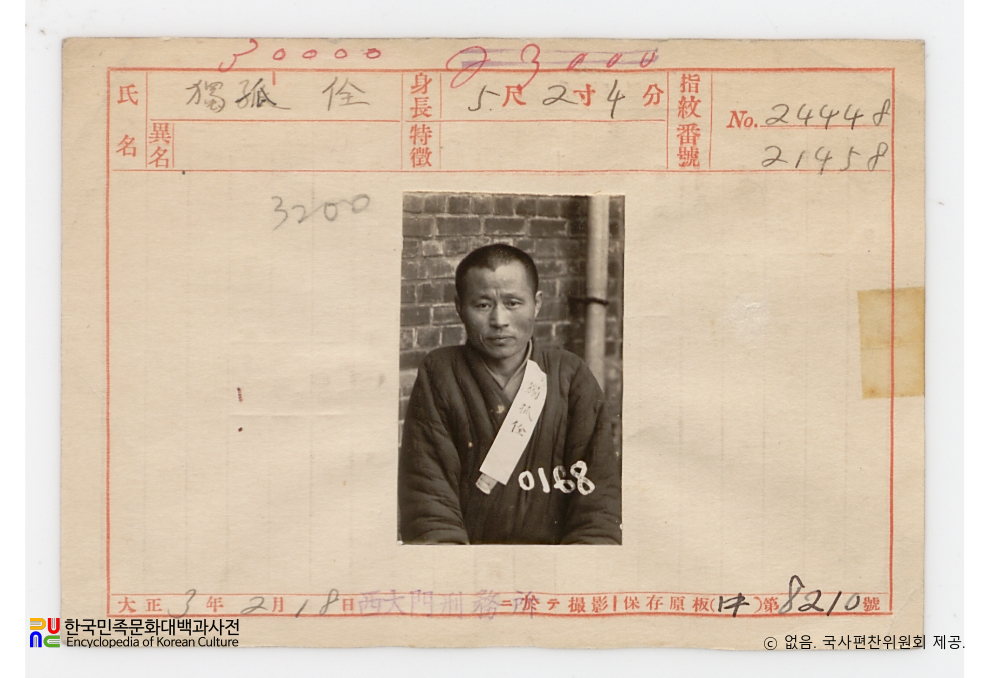 30000 23000
氏名 獨孤 佺 身長 5尺2寸4分 指紋番號 No. 24448
異名 特徵 21458
3200
獨孤佺
0168
大正3年2月18日西大門刑務所ニ於テ撮影 保存原板(中)第8210號
한국민족문화대백과사전
Encyclopedia of Korean Culture
ⓒ 없음. 국사편찬위원회 제공.